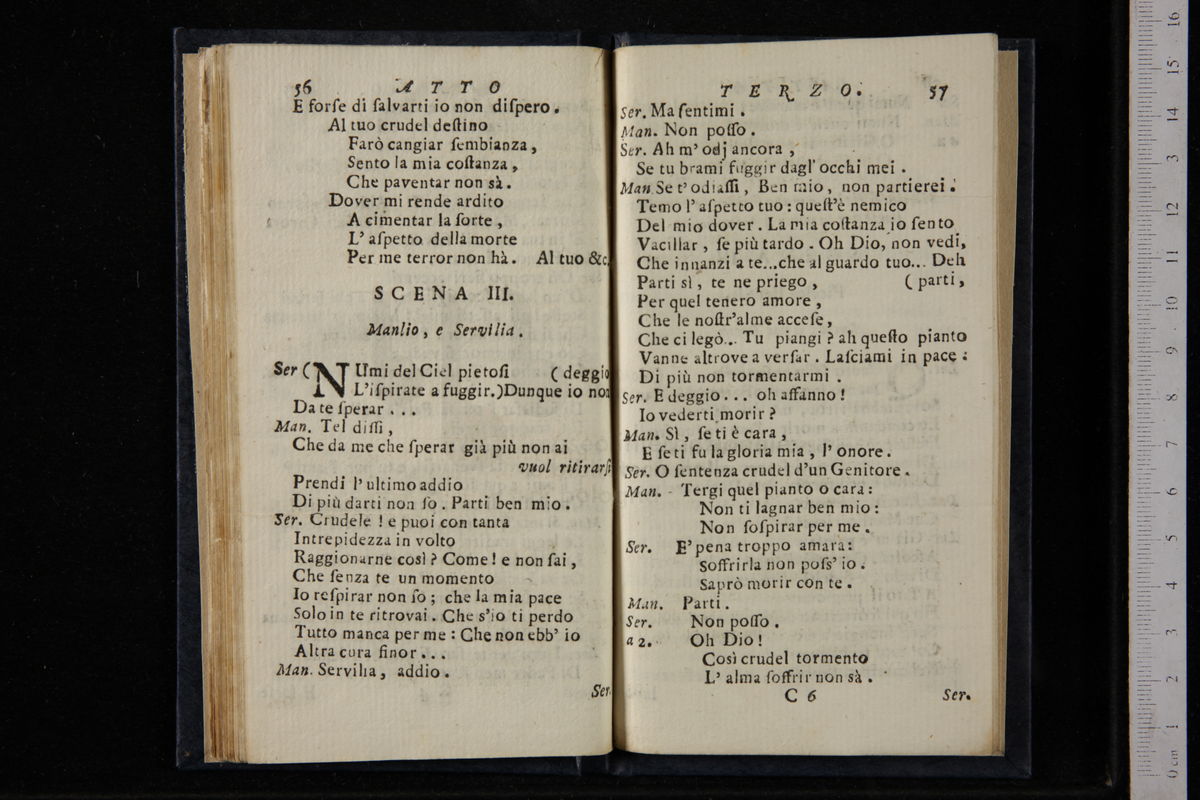 56 ATTO
E forſe di ſalvarti io non diſpero.
Al tuo crudel deſtino
Farò cangiar ſembianza,
Sento la mia coſtanza,
Che paventar non sà.
Dover mi rende ardito
A cimentar la ſorte,
L' aſpetto della morte
Per me terror non hà. Al tuo &c.
SCENA III.
Manlio, e Servilia.
Ser (NUmi del Ciel pietoſi ( deggio
L'iſpirate a fuggir.)Dunque io non
Da te ſperar . . .
Man. Tel diſſi,
Che da me che ſperar già più non ai
vuol ritirarſi
Prendi l' ultimo addio
Di più darti non ſo . Parti ben mio.
Ser. Crudele ! e puoi con tanta
Intrepidezza in volto
Raggionarne così ? Come ! e non ſai,
Che ſenza te un momento
Io reſpirar non ſo ; che la mia pace
Solo in te ritrovai . Che s'io ti perdo
Tutto manca per me : Che non ebb' io
Altra cura finor . . .
Man. Servilia, addio.
Ser.
TERZO. 57
Ser. Ma ſentimi .
Man. Non poſſo .
Ser. Ah m' odj ancora ,
Se tu brami fuggir dagl' occhi mei .
Man Se t' odiaſſi , Ben mio, non partierei .
Temo l' aſpetto tuo : queſt'è nemico
Del mio dover . La mia coſtanza io ſento
Vacillar , ſe più tardo . Oh Dio, non vedi,
Che innanzi a te...che al guardo tuo... Deh
Parti sì, te ne priego , ( parti,
Per quel tenero amore ,
Che le noſtr'alme acceſe,
Che ci legò... Tu piangi ? ah queſto pianto
Vanne altrove a verſar . Laſciami in pace :
Di più non tormentarmi .
Ser. E deggio . . . oh affanno !
Io vederti morir ?
Man. Sì , ſe ti è cara ,
E ſe ti fu la gloria mia , l' onore .
Ser. O ſentenza crudel d'un Genitore .
Man. Tergi quel pianto o cara :
Non ti lagnar ben mio :
Non ſoſpirar per me .
Ser. E' pena troppo amara :
Soffrirla non poſs' io .
Saprò morir con te .
Man. Parti .
Ser. Non poſſo .
a 2. Oh Dio !
Così crudel tormento
L' alma ſoffrir non sà .
C 6 Ser.
0 cm 1 2 3 4 5 6 7 8 9 10 11 12 13 14 15 16